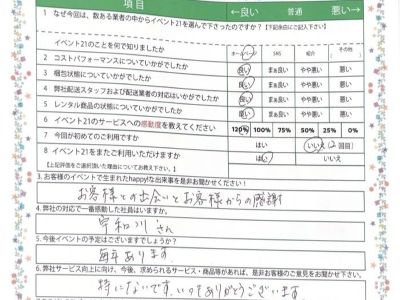 項目 ←良い 普通 悪い→
1 なぜ今回は、数ある業者の中からイベント21を選んで下さったのですか？【下記余白にご記入下さい】
イベント21のことを何で知りましたか ホームページ SNS 紹介 その他
2 コストパフォーマンスについていかがでしたか 良い まぁ良い やや悪い 悪い
3 梱包状態についていかがでしたか 良い まぁ良い やや悪い 悪い
4 弊社配送スタッフおよび配送業者の対応はいかがでしたか 良い まぁ良い やや悪い 悪い
5 レンタル商品の状態についていかがでしたか 良い まぁ良い やや悪い 悪い
6 イベント21のサービスへの感動度を教えてください 120% 100% 75% 50% 25% 0%
7 今回が初めてのご利用ですか はい いいえ(2回目)
8 イベント21をまたご利用いただけますか はい いいえ
【上記評価をご選択頂いた理由についてお教え下さい。】
3.お客様のイベントで生まれたhappy!な出来事を是非お聞かせください!
お客様との出会いとお客様からの感謝
4.弊社の対応で一番感動した社員はいますか。
宇和川さん
5.今後イベントの予定はございますでしょうか?
毎年あります。
6.弊社サービス向上に向け、今後、求められるサービス・商品等があれば、是非お客様のご意見をお聞かせ下さい。
特にないです。いつもありがとうございます。